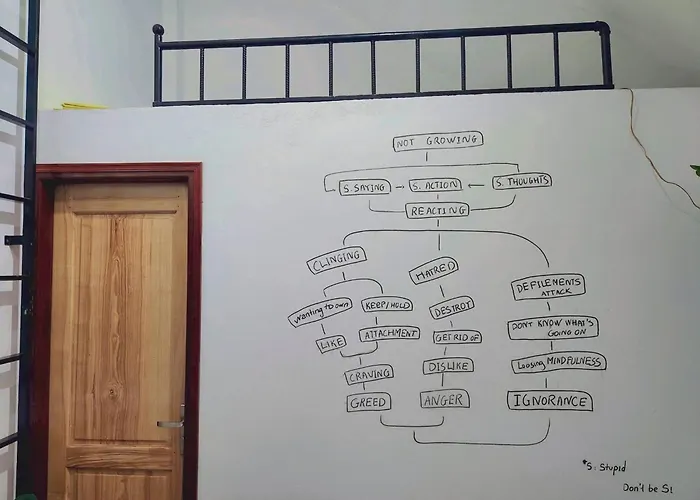 NOT GROWING
S. SAYING
S. ACTION
S. THOUGHTS
REACTING
CLINGING
HATRED
DEFILEMENTS
ATTACK
Wanting to own
KEEP/HOLD
DESTROY
DON'T KNOW WHAT'S
GOING ON
LIKE
ATTACHMENT
GET RID OF
Loosing MINDFULNESS
CRAVING
DISLIKE
GREED
ANGER
IGNORANCE
*S. Stupid
Don't be S!